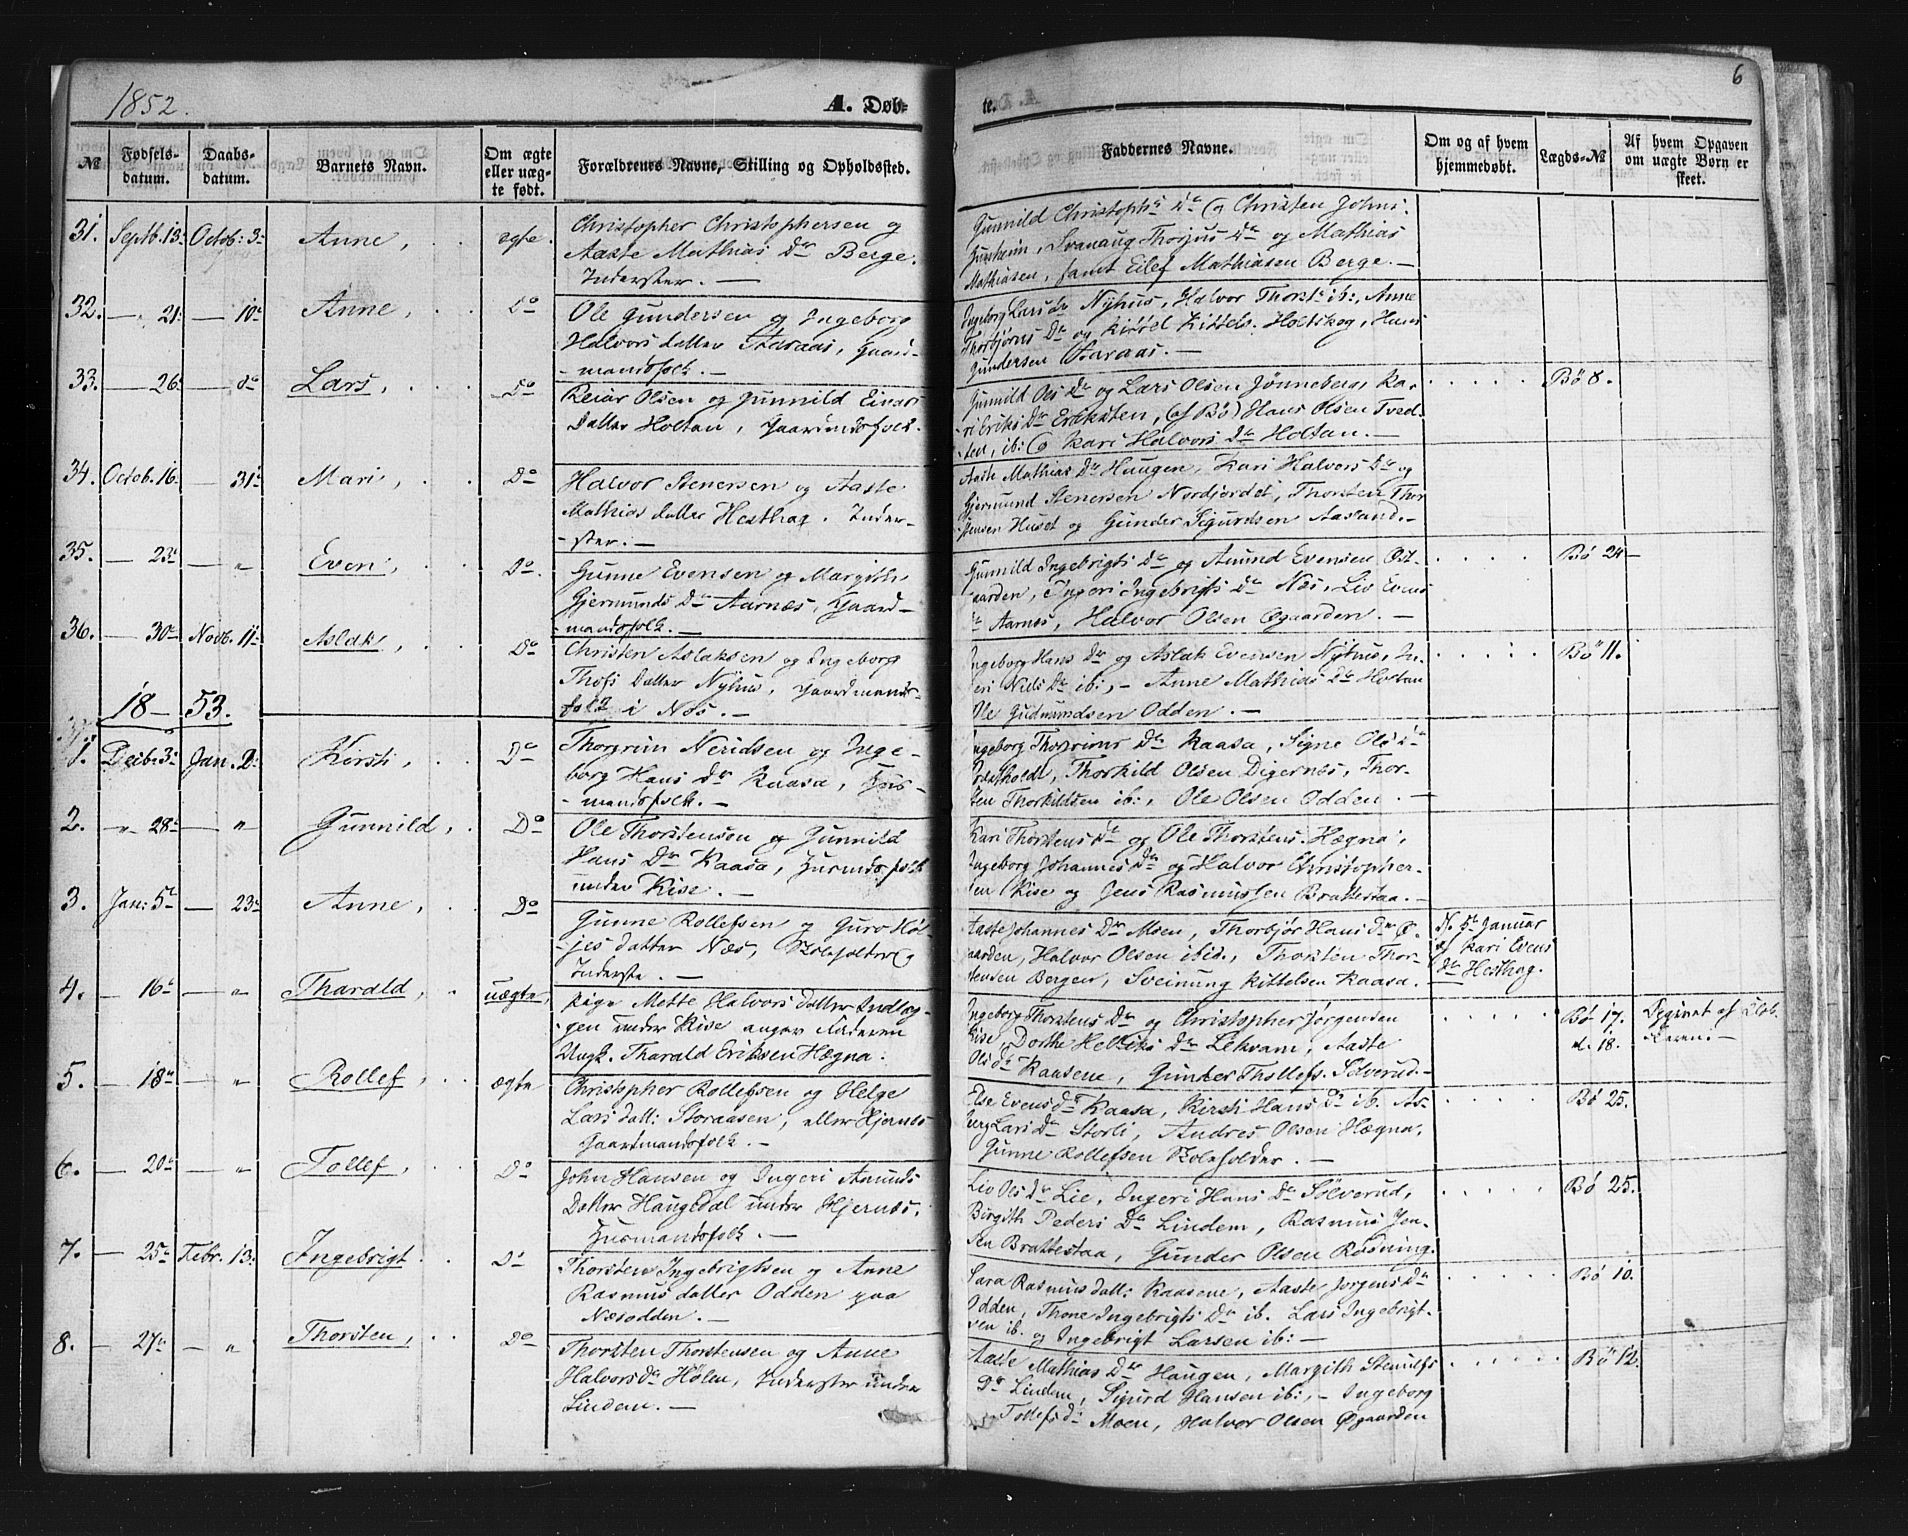 1852.
A. Døb-
№
Fødsels-
datum.
Daabs-
datum.
Barnets Navn.
Om ægte
eller uæg-
te født.
Forældrenes Navne, Stilling og Opholdssted.
31. Septb. 13. Octob: 3. Anne, ægte.
Christopher Christophersen og
Aaste Mathias Dr Berge.
Inderster. —
32. — 21. — 10. Anne, Do
Ole Gundersen og Ingeborg
Halvors datter Aaraas, Gaard-
mandsfolk. —
33. — 26. — do Lars, Do
Reiar Olsen og Gunnild Einars
Datter Holtan, Gaardmandsfolk.
34. Octob. 16. — 31. Mari, Do
Halvor Stenersen og Aaste
Mathias datter Hesthag. Inder-
ster. —
35. — 23. — " Even, Do.
Gunne Evensen og Margith
Gjermunds Dr Aarnæs, Gaard-
mandsfolk. —
36. — 30. Novb. 11. Aslak, Do
Christen Aslaksen og Ingeborg
Thofs Datter Nyhus, Gaardmands-
folk i Nes. —
18 — 53.
1. Decb. 3. Jan. 2. Kirsti, Do
Thorgrim Neridsen og Inge-
borg Hans Dr Kaasa, Huus-
mandsfolk. —
2. " 28. — " Gunnild, Do
Ole Thorstensen og Gunnild
Hans Dr Kaasa, Husmandsfolk
under Kise. —
3. Jan: 5. — 23. Anne, Do
Gunne Rollefsen og Guro Høl-
jes datter Næs, Skoleholder og
Inderste. —
4. — 16. — " Tharald, uægte,
Pige Mette Halvors datter Indlæg-
gen under Kise angav Faderen
Ungk. Tharald Eriksen Hægna.
5. — 18. — " Rollef, ægte
Christopher Rollefsen og Helge
Lars datt: Storaasen, eller Hjernes
Gaardmandsfolk. —
6. — 20. — " Tollef, Do
John Hansen og Ingeri Amunds
Datter Haugedal under Hjernes.
Husmandsfolk. —
7. — 25. Febr. 13. Ingebrigt. Do
Thorsten Ingebrigtsen og Anne
Rasmus datter Odden paa
Næsodden. —
8. — 27. — " Thorsten, Do
Thorsten Thorstensen og Anne
Halvors Dr Hølen, Inderster under
Lindem. —
6
te.
Faddernes Navne.
Om og af hvem
hjemmedøbt.
Lægds-№
Af hvem Opgaven
om uægte Børn er
skeet.
Gunnild Christophs Dr og Christen Johns.
Gursheim, Svanaug Thorjus Dr og Mathias
Mathiasen, samt Eilef Mathiasen Berge. —
Ingeborg Lars dr Nyhus, Halvor Thorst. ib:, Anne
Thorbjørns Dr og Kittel Kittels. Holtskog, Hans
Gundersen Aaraas. —
Gunnild Ols Dr og Lars Olsen Jønneberg, Ka-
ri Eriks Dr Eriksten, (af Bø) Hans Olsen Tved-
ten, ib: og Kari Halvors Dr Holtan. — Bø 8.
Aaste Mathias Dr Haugen, Kari Halvors Dr og
Gjermund Stenersen Nordjordet, Thorsten Thor-
stensen Huset og Gunder Sigurdsen Aasland. —
Gunnild Ingebrigts Dr og Amund Evensen Øst-
gaarden, Ingeri Ingebrigts Dr Nes, Liv Evens
Dr Aarnes, Halvor Olsen Øgaarden. — Bø 24 —
Ingeborg Hans Dr og Aslak Evensen Nyhus, In-
geri Niels Dr ib:, — Anne Mathias Dr Holtan
Ole Gudmundsen Odden. — Bø 11.
Ingeborg Thorgrims Dr Kaasa, Signe Ols Dr
Thorkild Olsen Digernes, Thor-
sten Thorkildsen ib:, Ole Olsen Odden. —
Kari Thorstens Dr og Ole Thorstens. Hægna,
Ingeborg Johannes Dr og Halvor Christopher-
sen Kise og Jens Rasmussen Brattestaa. —
Aaste Johannes Dr Moen, Thorbjør Hans Dr Ø-
gaarden, Halvor Olsen ibid., Thorsten Thor-
stensen Bergen, Sveinung Kittelsen Kaasa.
5te Januar
af Kari Evens
Dr Hesthag.
Ingeborg Thorstens Dr og Christopher Jørgensen
Kise, Dorthe Helliks Dr Lekvam, Aaste
Ols Dr Kaasene, Gunder Thollefs. Solverud. —
Bø 17.
18.
Deginat af Klok-
keren. —
Else Evens Dr Kaasa, Kirsti Hans Dr ib. As-
berg Lars Dr Storli, Andres Olsen Hægna,
Gunne Rollefsen Skoleholder. — Bø 25.
Liv Ols Dr Lie, Ingeri Hans Dr Sølverud,
Birgith Peders Dr Lindem, Rasmus Jen-
sen Brattestaa, Gunder Olsen Røsning. Bø 25.
Sara Rasmus datt: Kaasene, Aaste Jørgens Dr
Odden, Thone Ingebrigts Dr ib. Lars Ingebrigt-
sen ib. og Ingebrigt Larsen ib: — Bø 10.
Aaste Mathias Dr Haugen, Margith Stenulfs
Dr Lindem, Sigurd Hansen ib:, — Ingeborg
Tollefs Dr Moen, Halvor Olsen Øgaarden Bø 12.